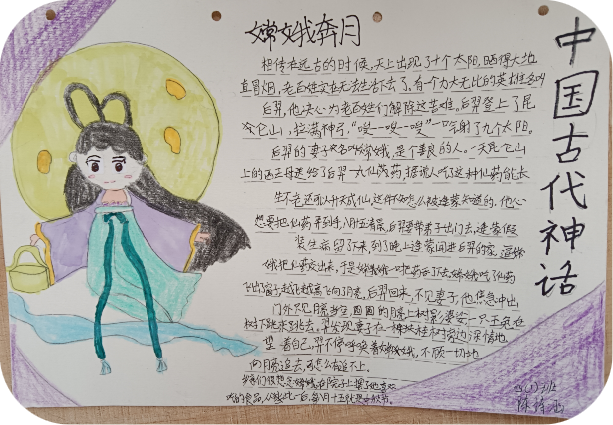 嫦娥奔月
相传在远古的时候,天上出现了十个太阳,晒得大地
直冒烟,老百姓实在无法生活下去了。有一个力大无比的英雄名叫
后羿,他决心为老百姓们解除这苦难。后羿登上了昆
仑山,拉满神弓,“嗖—嗖—嗖”一口气射了九个太阳。
后羿的妻子名叫嫦娥,是个善良的人。一天昆仑山
上的西王母送给了后羿一丸仙药,据说人吃了这种仙药能长
生不老还可以升天成仙,这件事不知怎么被逢蒙知道的,他心
想要把仙药弄到手,八月十五清晨,后羿要带弟子出门去,逢蒙假
装生病留了下来,到了晚上逢蒙闯进后羿的家,逼嫦
娥把仙药交出来,于是嫦娥一吃药后了去,嫦娥吃了仙药
飞出了窗子,越飞越高飞向了月亮,后羿回来,不见妻子,他焦急冲出
门外只见月亮
树下跳来跳去,羿发现妻子在一棵桂树旁边深情地
望着自己,羿不停呼唤着嫦娥,不顾一切地
向月亮追去,可怎么也追不上。
乡亲们很想念嫦娥,在院子上摆了她喜欢
吃的食品,从此以后,每八月十五就是中秋节。
中国古代神话